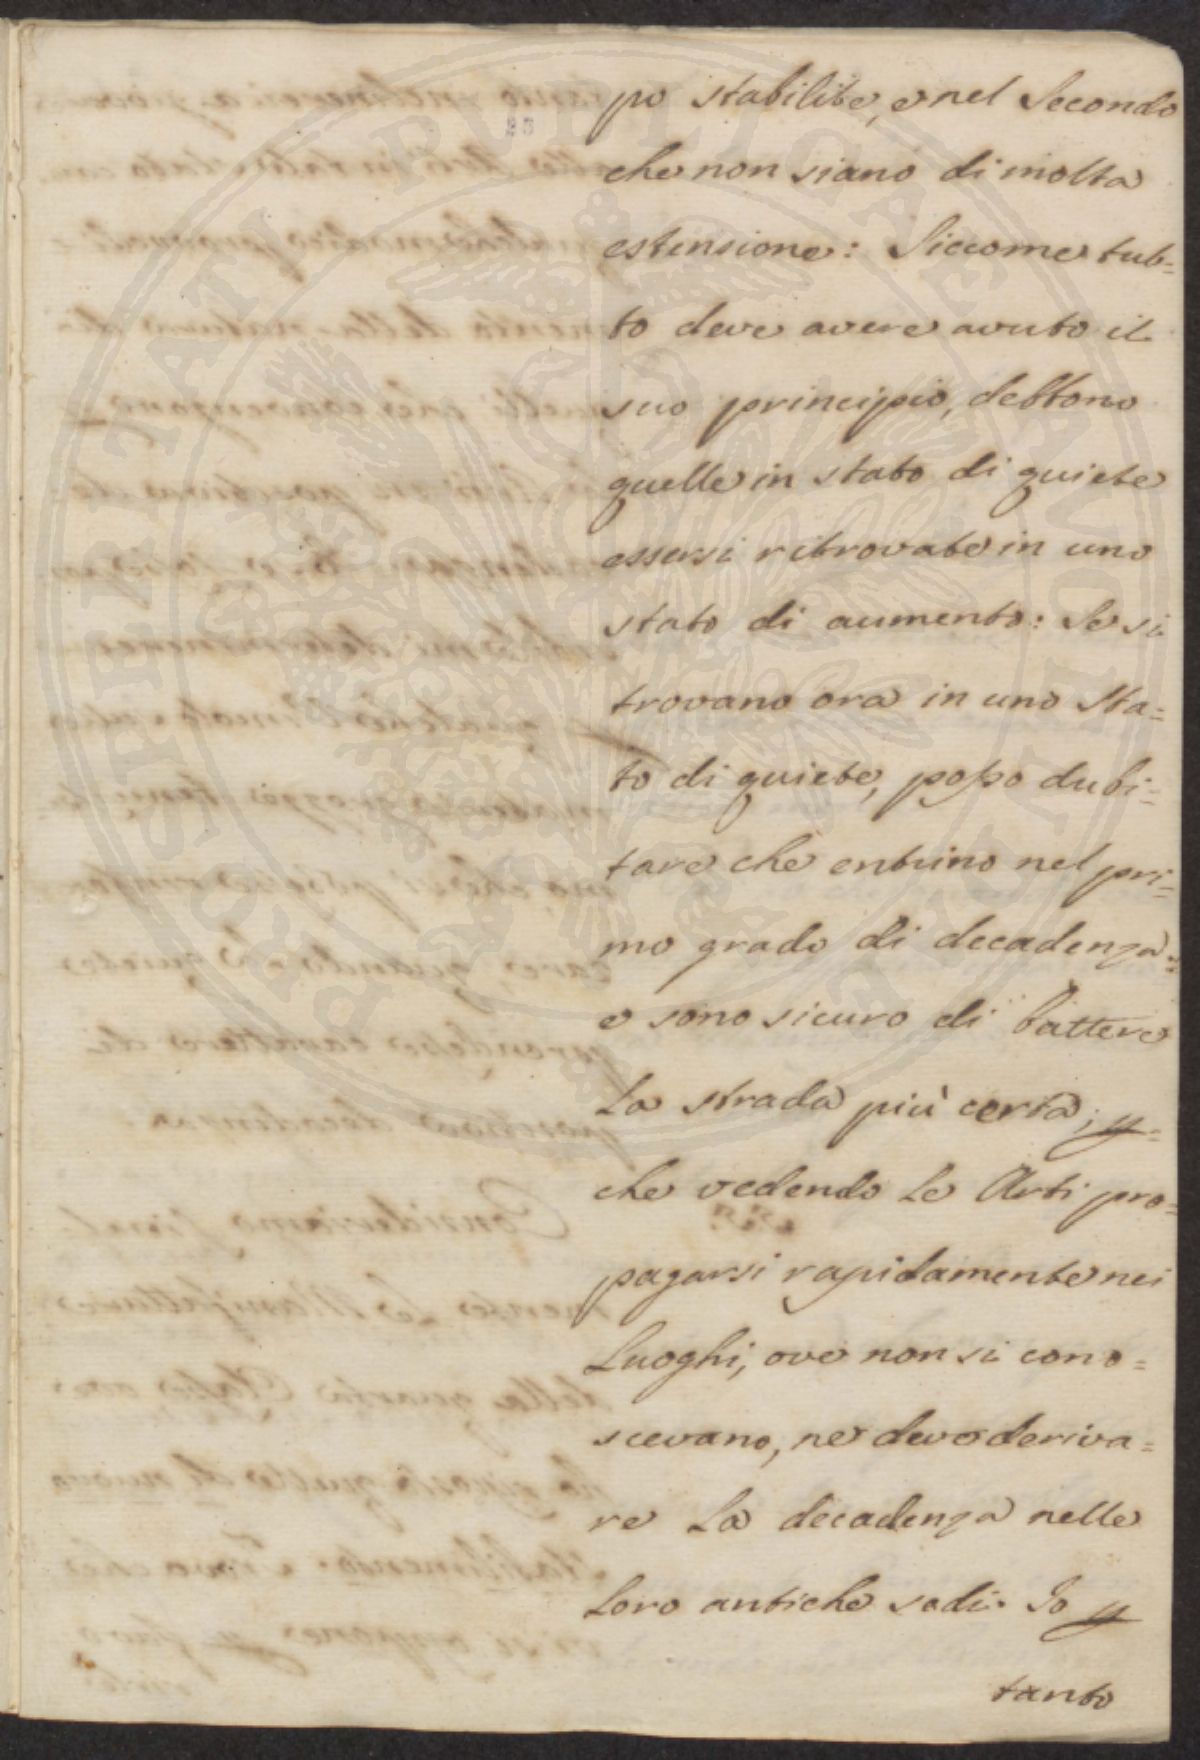 po stabilite, e nel Secondo
che non siano di molta
estensione: Siccome tut=
to deve avere avuto il
suo principio, debbono
quelle in stato di quiete
essersi ritrovate in uno
stato di aumento: Se si
trovano ora in uno Sta=
to di quiete, posso dubi=
tare che entrino nel pri=
mo grado di decadenza:
e sono sicuro di battere
La strada più certa;
che vedendo Le Arti pro=
pagarsi rapidamente nei
Luoghi, ove non si cono=
scevano, ne deve deriva=
re La decadenza nelle
Loro antiche sedi. Io
tanto
PROSPERITATI PUBLICAE AUGENDAE